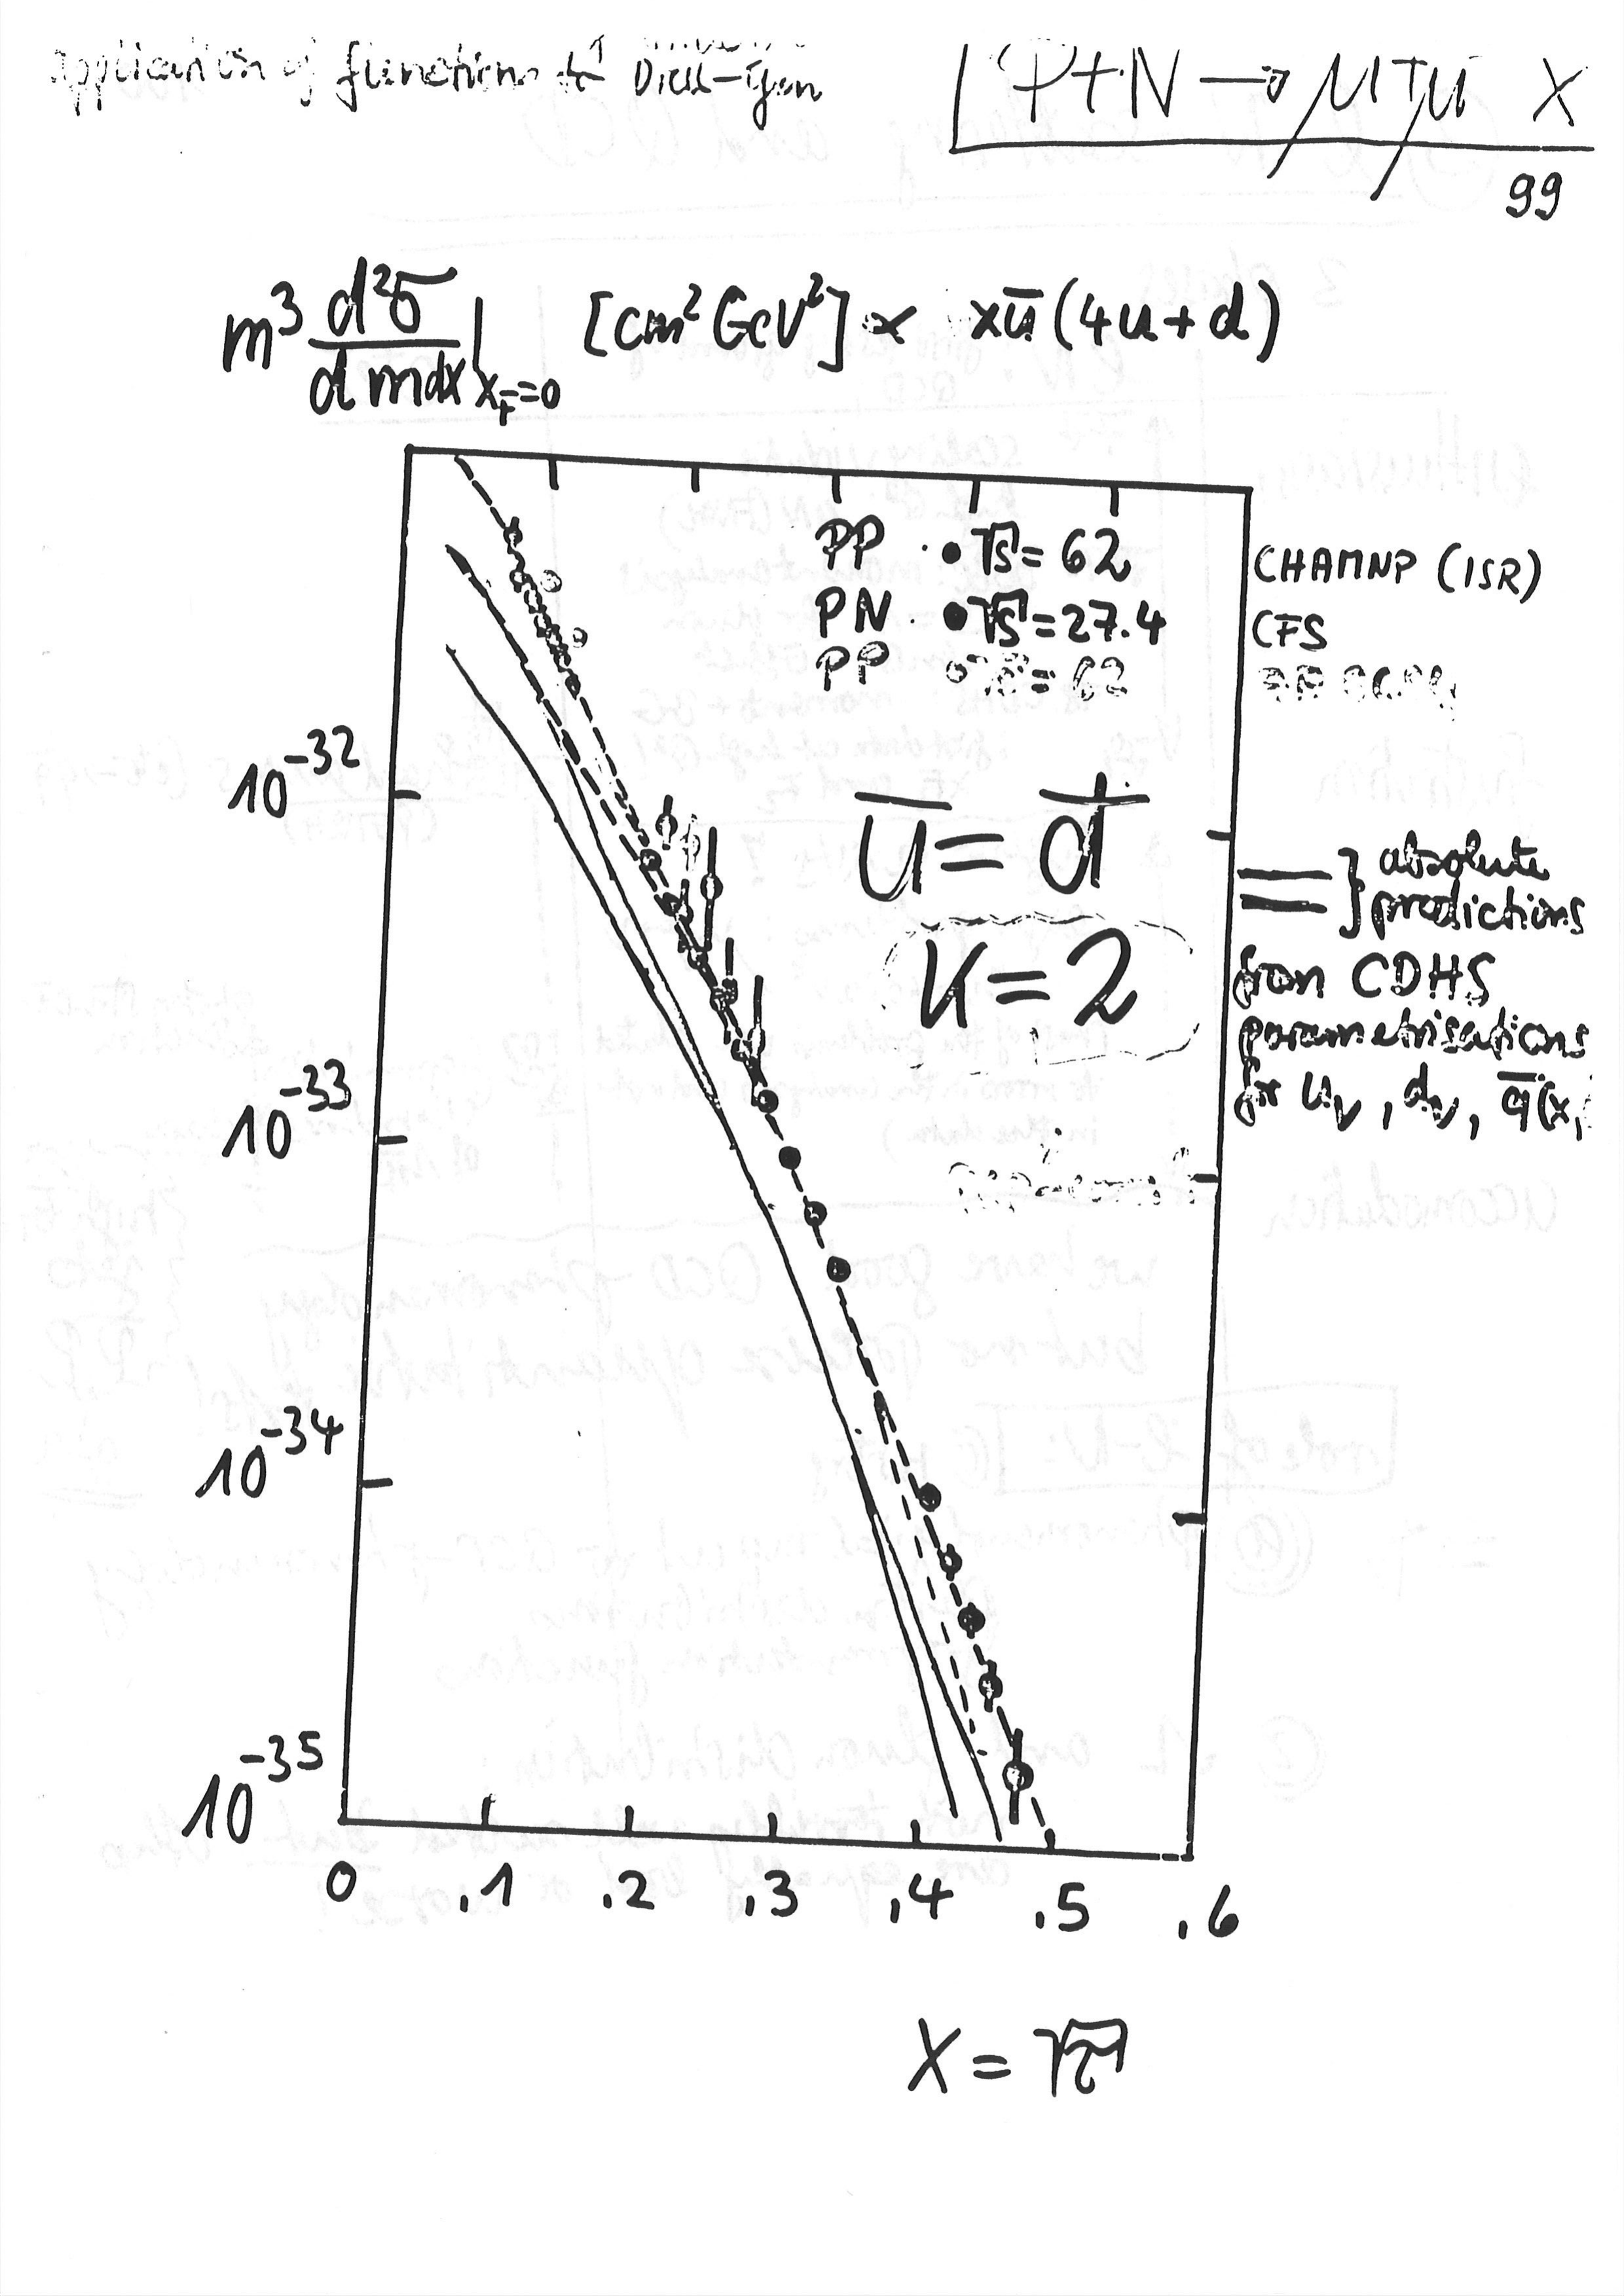 application of functions to Drell-Yan
P+N → μ+μ X
99
m³ d²σ / dmdx |x_F=0 [cm² GeV²] ∝ xū(4u+d)
PP • √s = 62 CHAMNP (ISR)
PN • √s = 27.4 CFS
PP ∘ √s = 62
10⁻³²
ū = d̄
K = 2
} absolute
predictions
from CDHS
parametrisations
for u_v, d_v, q̄(x,
10⁻³³
10⁻³⁴
10⁻³⁵
0 .1 .2 .3 .4 .5 .6
X = √τ